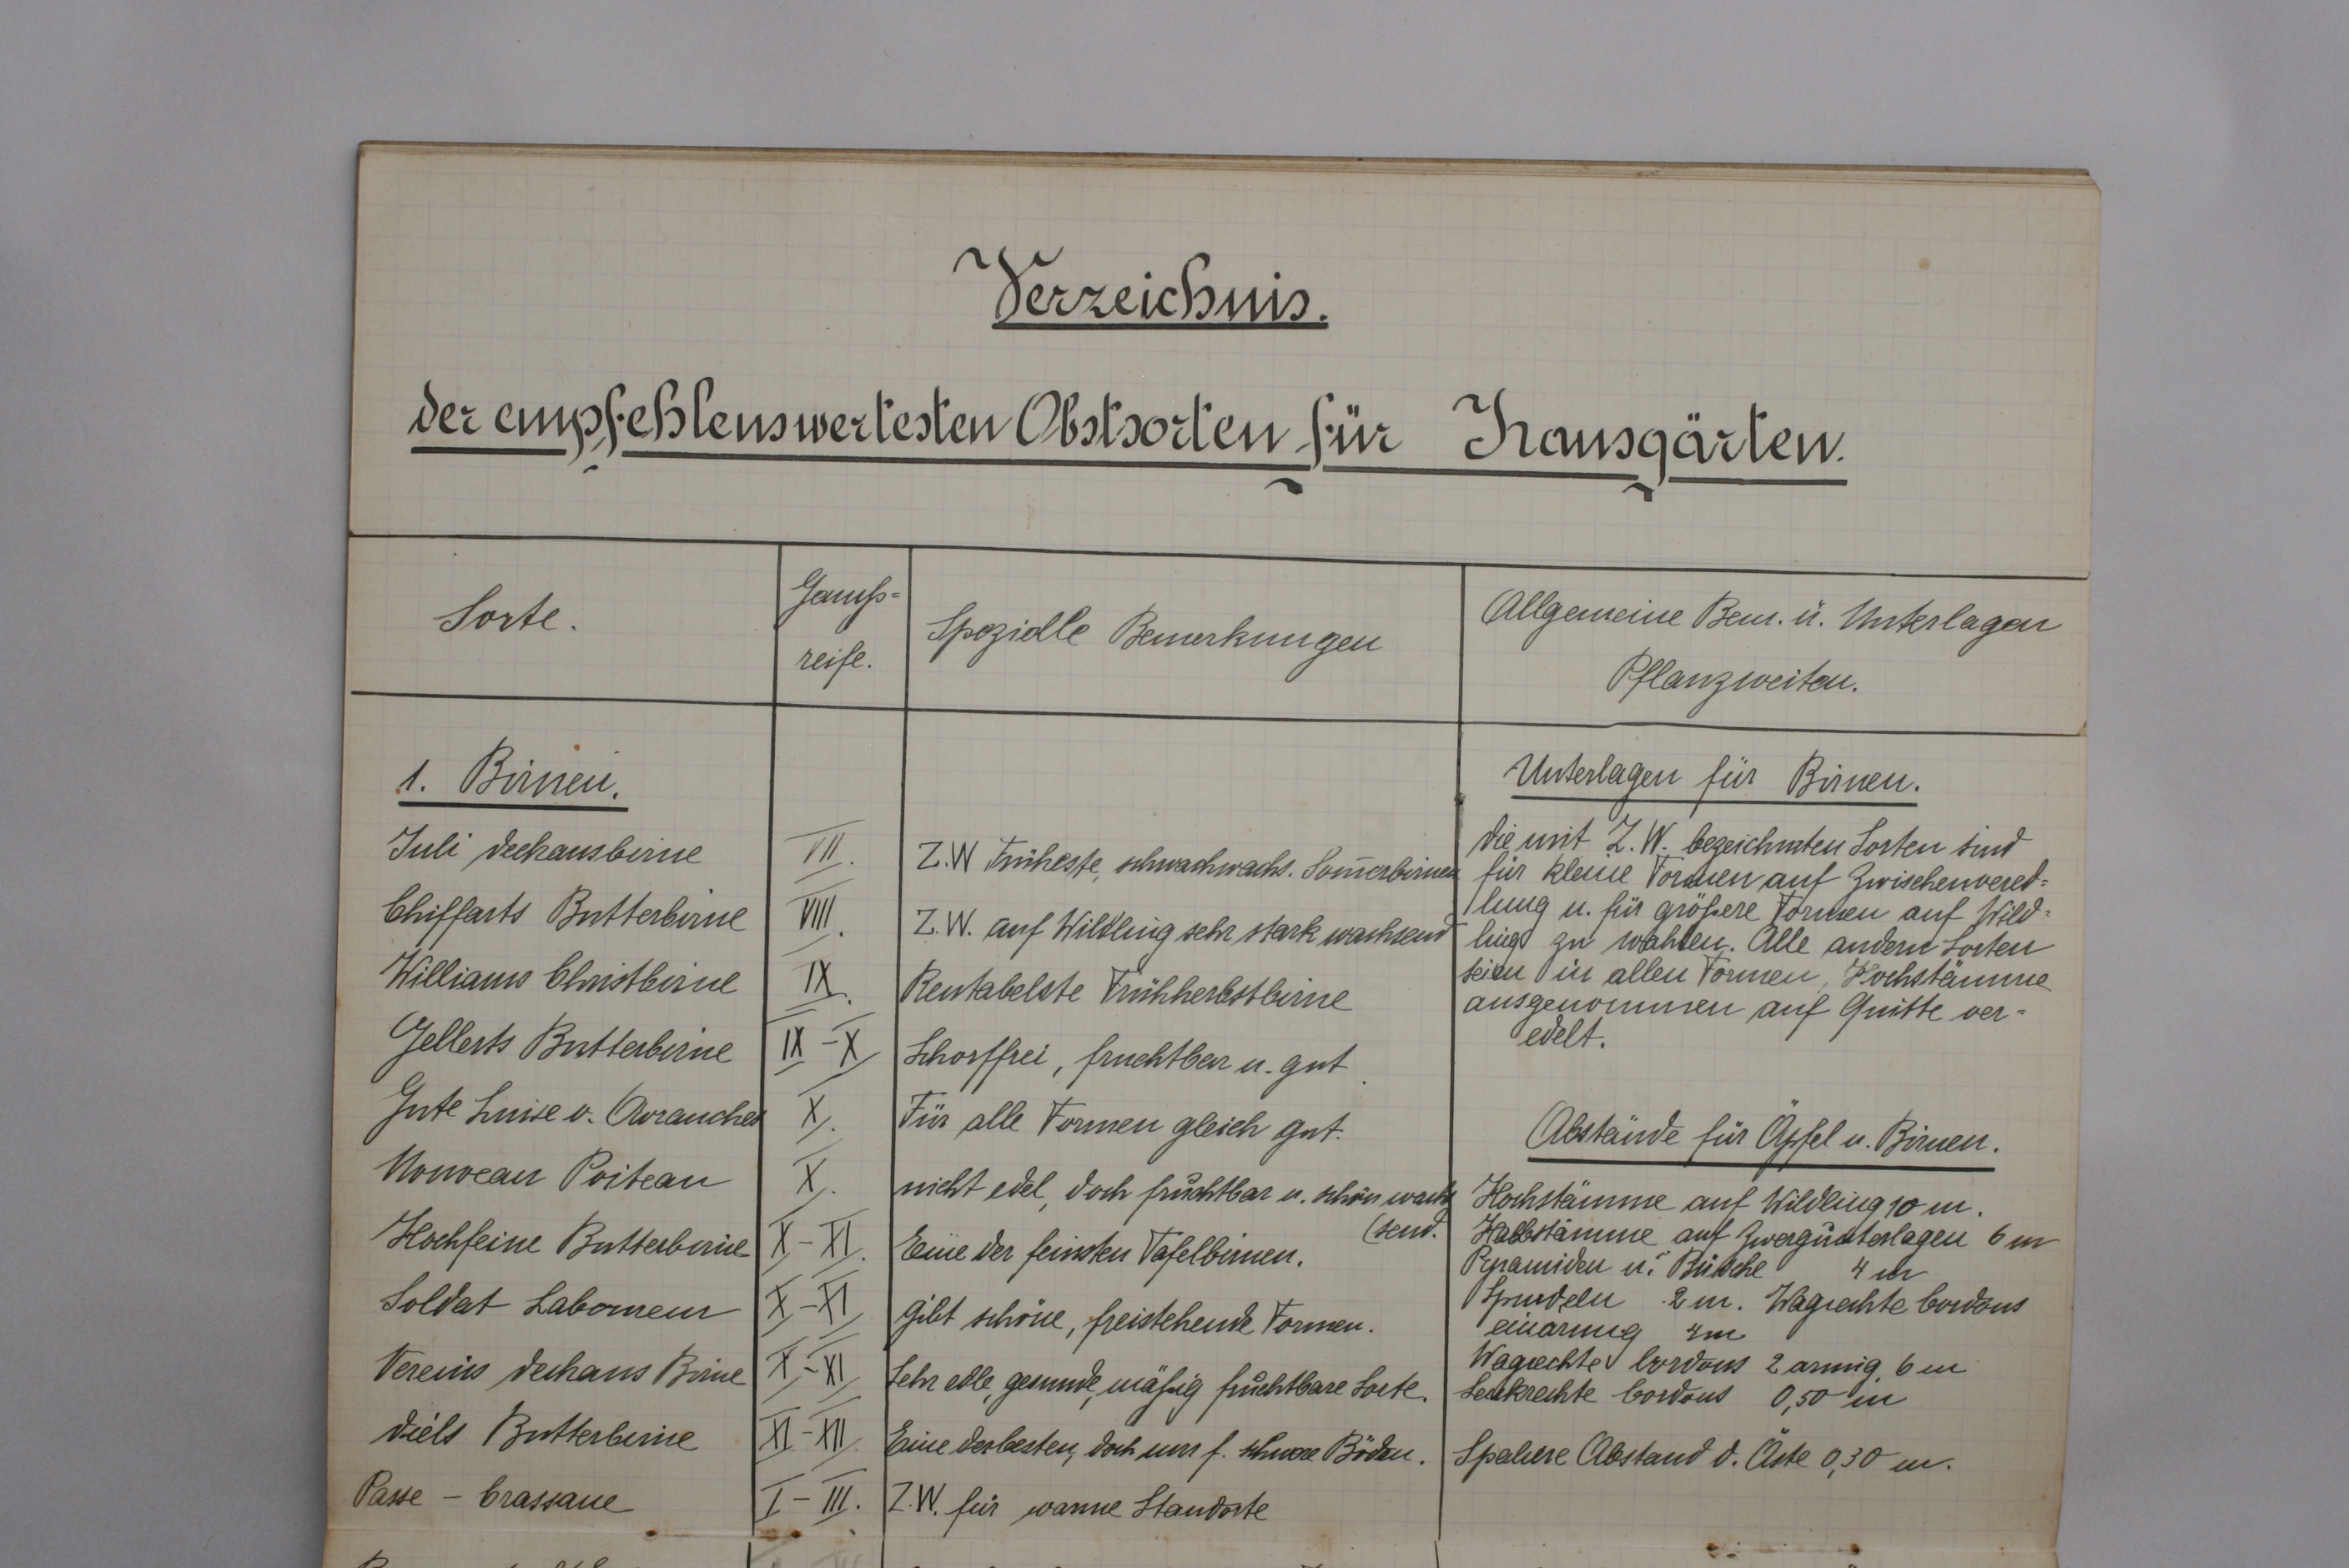 Verzeichnis.
der empfehlenswertesten Obstsorten für Hausgärten.
Sorte.
Genuß=
reife.
Spezielle Bemerkungen
Allgemeine Bem. ü. Unterlagen
Pflanzweiten.
1. Birnen.
Unterlagen für Birnen.
Juli Dechansbirne
VII.
Z.W Früheste, schwachwachs. Som̅erbirnen
Chiffarts Butterbirne
VIII.
Z.W. auf Wildling sehr stark wachsend
Williams Christbirne
IX.
Rentabelste Frühherbstbirne
Gellerts Butterbirne
IX - X
Schorffrei, fruchtbar u. gut.
Gute Luise v. Avranches
X.
Für alle Formen gleich gut.
Nouveau Poiteau
X.
nicht edel, doch fruchtbar u. schön wach
(send.
Hochfeine Butterbirne
X - XI.
Eine der feinsten Tafelbirnen.
Soldat Laboureur
X - XI
Gibt schöne, freistehende Formen.
Vereins Dechans Birne
X - XI
Sehr edle, gesunde, mäßig fruchtbare Sorte.
Diels Butterbirne
XI - XII.
Eine der besten, doch nur f. schwere Böden.
Passe - Crassane
I - III.
Z.W. für warme Standorte
Die mit Z.W. bezeichneten Sorten sind
für kleine Formen auf Zwischenvered=
lung u. für größere Formen auf Wild=
ling zu wählen. Alle andern Sorten
seien in allen Formen, Hochstämme
ausgenommen auf Quitte ver=
edelt.
Abstände für Äpfel u. Birnen.
Hochstämme auf Wildling 10 m.
Halbstämme auf Zwergunterlagen 6 m
Pyramiden u. Büsche 4 m
Spindeln 2 m. Wagrechte Cordons
einarmig 4 m
Wagrechte Cordons 2 armig, 6 m
Senkrechte Cordons 0,50 m
Spaliere Abstand d. Äste 0,30 m.